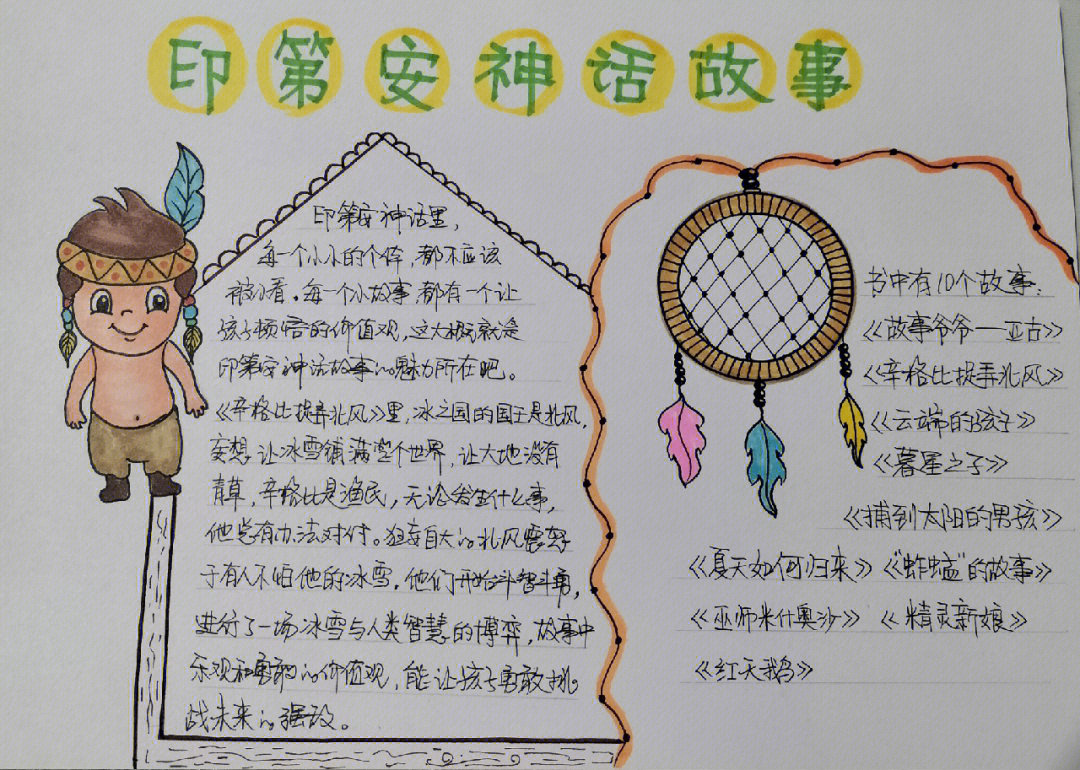 印第安神话故事
印第安神话里，
每一个小小的个体，都不应该
被小看。每一个小故事都有一个让
孩子领悟的价值观，这大概就是
印第安神话故事的魅力所在吧。
《辛格比捉弄北风》里，冰之国的国王是北风，
妄想让冰雪铺满整个世界，让大地没有
青草，辛格比是渔民，无论发生什么事，
他总有办法对付。狂妄自大的北风震怒
于有人不怕他的冰雪，他们开始斗智斗勇，
进行了一场冰雪与人类智慧的博弈，故事中
乐观和勇敢的价值观，能让孩子勇敢挑
战未来的强敌。
书中有10个故事：
《故事爷爷——亚古》
《辛格比捉弄北风》
《云端的孩子》
《暮星之子》
《捕到太阳的男孩》
《夏天如何归来》《“蚱蜢”的故事》
《巫师米什奥沙》《精灵新娘》
《红天鹅》